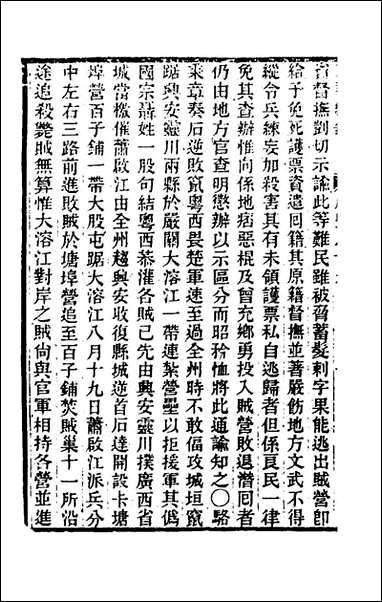 官督撫剴切示諭此等難民雖被脅蓄髮刺字果能逃出賊營卽
給予免死護票資遣回籍其原籍督撫並著嚴飭地方文武不得
縱令兵練妄加殺害其有未領護票私自逃歸者但係良民一律
免其查辦惟向係地痞惡棍及曾充鄉勇投入賊營敗退潛回者
仍由地方官查明懲辦以示區分而昭矜恤將此通諭知之〇駱
秉章奏石逆敗竄粵西畏楚軍速至過全州時不敢偪攻城垣竄
踞興安靈川兩縣於嚴關大溶江一帶連紮營壘以拒援軍其僞
國宗聶姓一股勾結粵西蔡灌各賊已先由興安靈川撲廣西省
城當檄催蕭啟江由全州趨興安收復縣城逆首石達開設卡塘
埠營百子鋪一帶大股屯踞大溶江八月十九日蕭啟江派兵分
中左右三路前進敗賊於塘埠營追至百子鋪焚賊巢十一所沿
途追殺斃賊無算惟大溶江對岸之賊尙與官軍相持各營並進